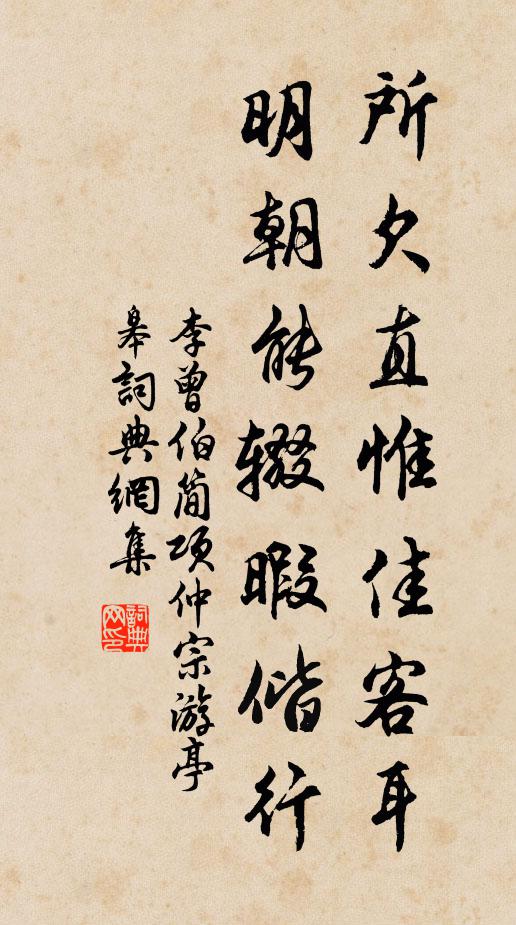 所欠直惟佳客耳
明朝能辍暇偕行
李曾伯简项仲宗游亭
皋詞典網集
詞典网印